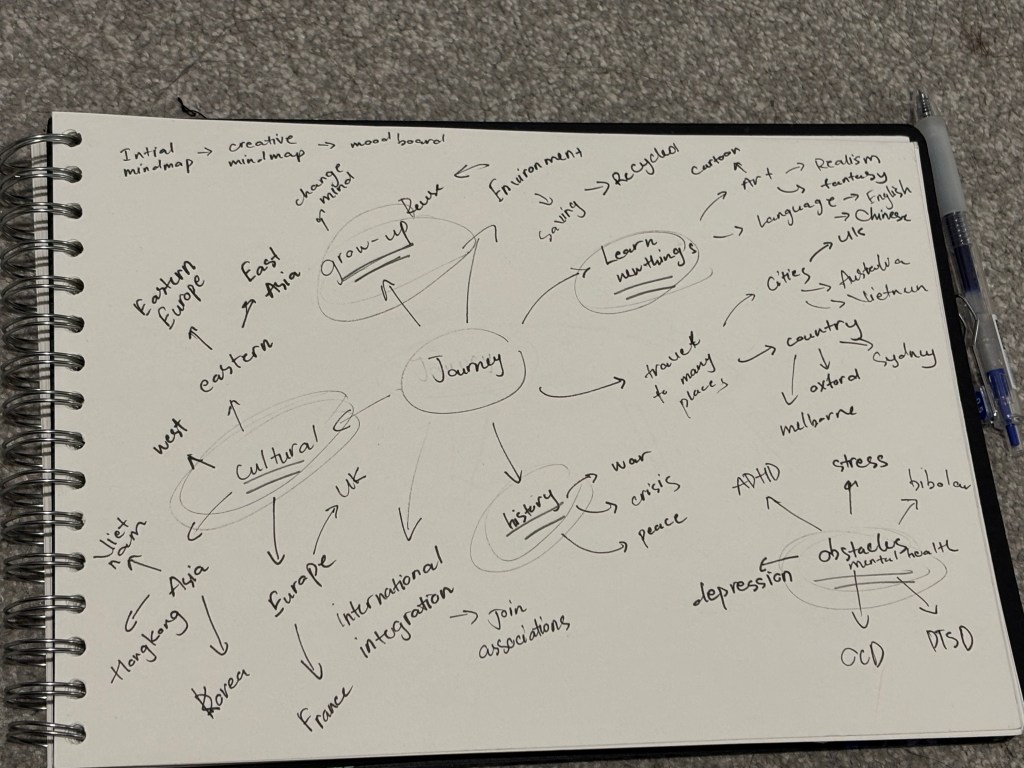 Intial → creative → moodboard
mindmap mindmap
change
mind
grow-up
Environment
Saving
→ Recycled
cartoon
Art
→ Realism
fantasy
→ Language → English
→ Chinese
Learn
newthings
Eastern
Europe
East
Asia
eastern
west
cultural
Journey
travel
to many
places
Cities
UK
Australia
Vietnam
country
Sydney
oxford
melborne
history
war
crisis
peace
UK
Europe
France
Asia
Viet
nam
Hongkong
Korea
international
integration → Join
associations
ADHD
stress
obstacles
mental health
depression
OCD
PTSD